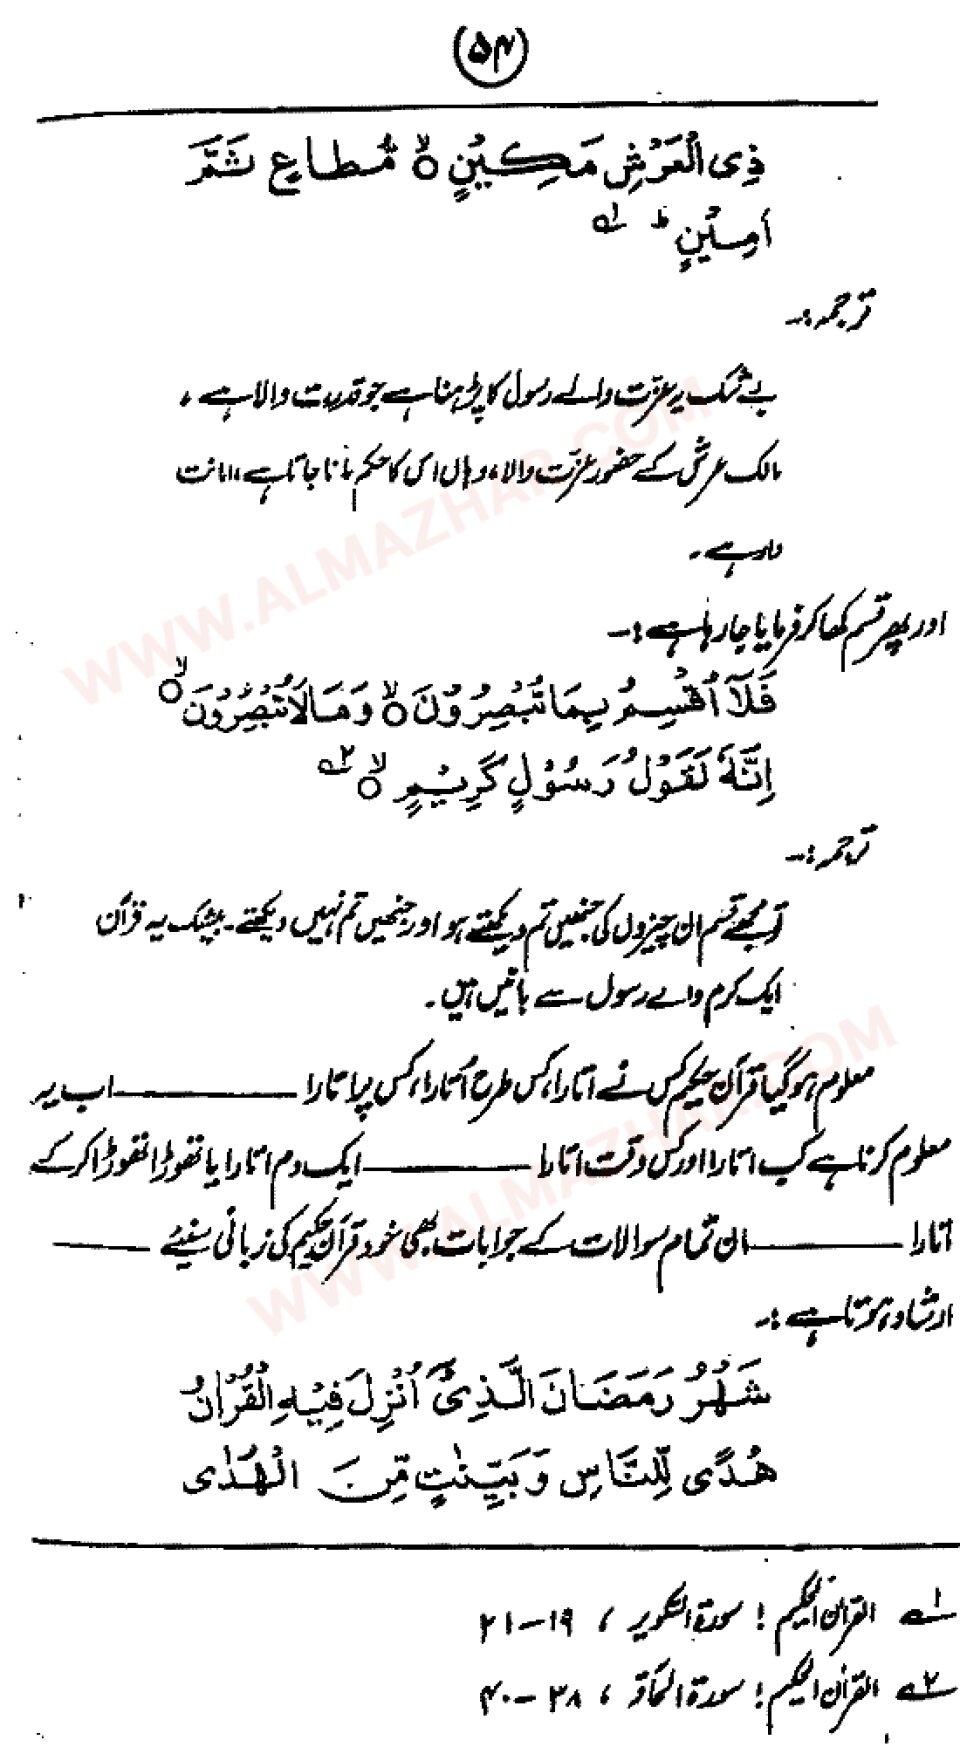 (۵۴)
ذِی الْعَرْشِ مَکِیْنٍ ۙ مُّطَاعٍ ثَمَّ
اَمِیْنٍ ؕ ۱؎
ترجمہ:۔
بے شک یہ عزّت والے رسول کا پڑہنا ہے جو قدرت والا ہے ۔
مالک عرش کے حضور عزّت والا، وہاں اس کا حکم مانا جاتا ہے، امانت
دار ہے ۔
اور پھر قسم کھا کر فرمایا جا رہا ہے :۔
فَلَاۤ اُقْسِمُ بِمَا تُبْصِرُوْنَ ۙ وَمَا لَا تُبْصِرُوْنَ ۙ
اِنَّہٗ لَقَوْلُ رَسُوْلٍ کَرِیْمٍ ۙ ۲؎
ترجمہ :۔
تو مجھے قسم ان چیزوں کی جنھیں تم دیکھتے ہو اور جنھیں تم نہیں دیکھتے۔ بیشک یہ قرآن
ایک کرم والے رسول سے باتیں ہیں ۔
معلوم ہو گیا قرآن حکیم کس نے اتارا، کس طرح اُتارا، کس پر اتارا ——— اب یہ
معلوم کرنا ہے کب اتارا اور کس وقت اتارا ——— ایک دم اتارا یا تھوڑا تھوڑا کر کے
اتارا ——— ان تمام سوالات کے جوابات بھی خود قرآن حکیم کی زبانی سنیئے ———
ارشاد ہوتا ہے :۔
شَہْرُ رَمَضَانَ الَّذِیْۤ اُنْزِلَ فِیْہِ الْقُرْاٰنُ
ہُدًی لِّلنَّاسِ وَبَیِّنٰتٍ مِّنَ الْہُدٰی
۱؎ القرآن الحکیم ! سورۃ التکویر ، ۱۹—۲۱
۲؎ القرآن الحکیم ! سورۃ الحاقۃ ، ۳۸—۴۰
WWW.ALMAZHAR.COM
WWW.ALMAZHAR.COM